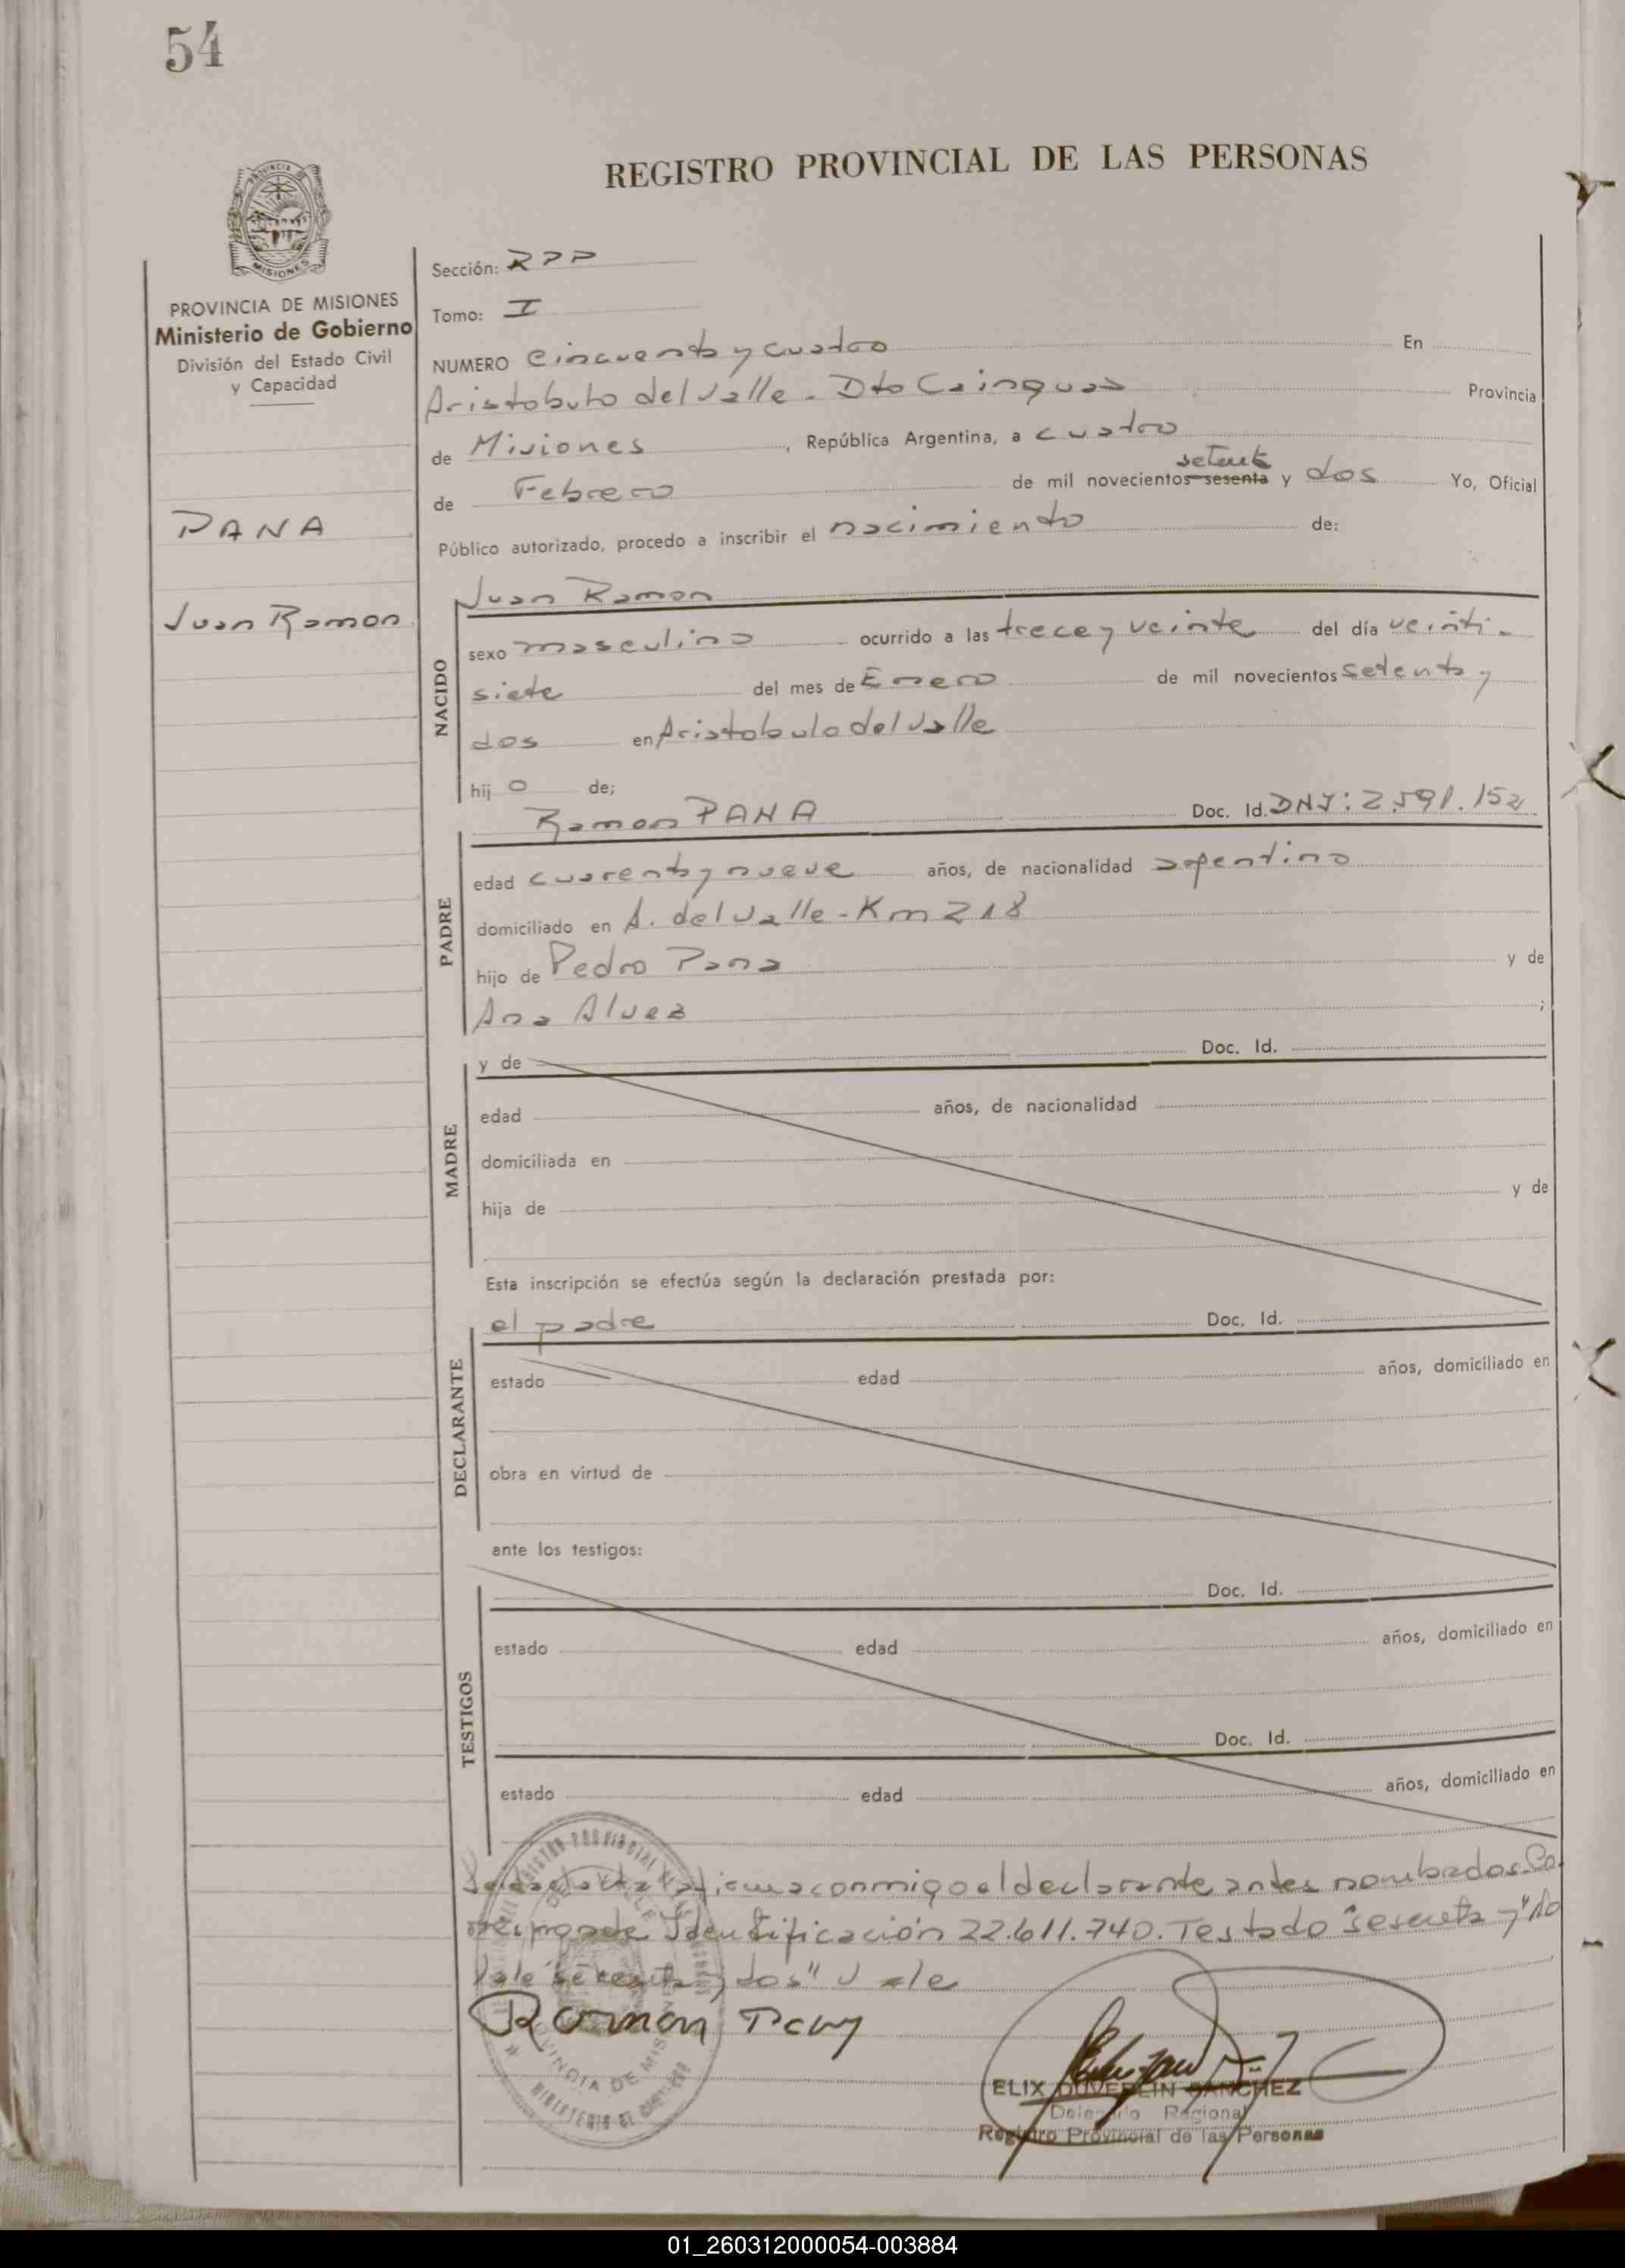 54
REGISTRO PROVINCIAL DE LAS PERSONAS
PROVINCIA DE
MISIONES
PROVINCIA DE MISIONES
Ministerio de Gobierno
División del Estado Civil
y Capacidad
PANA
Juan Ramon
Sección: RPP
Tomo: I
NUMERO Cincuenta y cuatro En
Aristobulo del Valle - Dto Cainguas Provincia
de Misiones, República Argentina, a cuatro
setenta
de Febrero de mil novecientos sesenta y dos Yo, Oficial
Público autorizado, procedo a inscribir el nacimiento de:
Juan Ramon
NACIDO
sexo masculino ocurrido a las trece y veinte del día veinti-
siete del mes de Enero de mil novecientos setenta y
dos en Aristobulo del Valle
hijo de;
Ramon PANA Doc. Id. DNI: 2.591.152
PADRE
edad cuarenta y nueve años, de nacionalidad argentino
domiciliado en A. del Valle - Km 218
hijo de Pedro Pana y de
Ana Alvez ;
MADRE
y de Doc. Id.
edad años, de nacionalidad
domiciliada en
hija de y de
Esta inscripción se efectúa según la declaración prestada por:
el padre Doc. Id.
DECLARANTE
estado edad años, domiciliado en
obra en virtud de
ante los testigos:
Doc. Id.
TESTIGOS
estado edad años, domiciliado en
Doc. Id.
estado edad años, domiciliado en
conmigo el declarante antes nombrados. Co
Identificación 22.611.740. Testado "sesenta y" No
Vale dos" Vale
Ramon
ELIX DUVERLIN SANCHEZ
Delegado Regional
Registro Provincial de las Personas
REGISTRO PROVINCIAL
PROVINCIA DE MISIONES
01_260312000054-003884